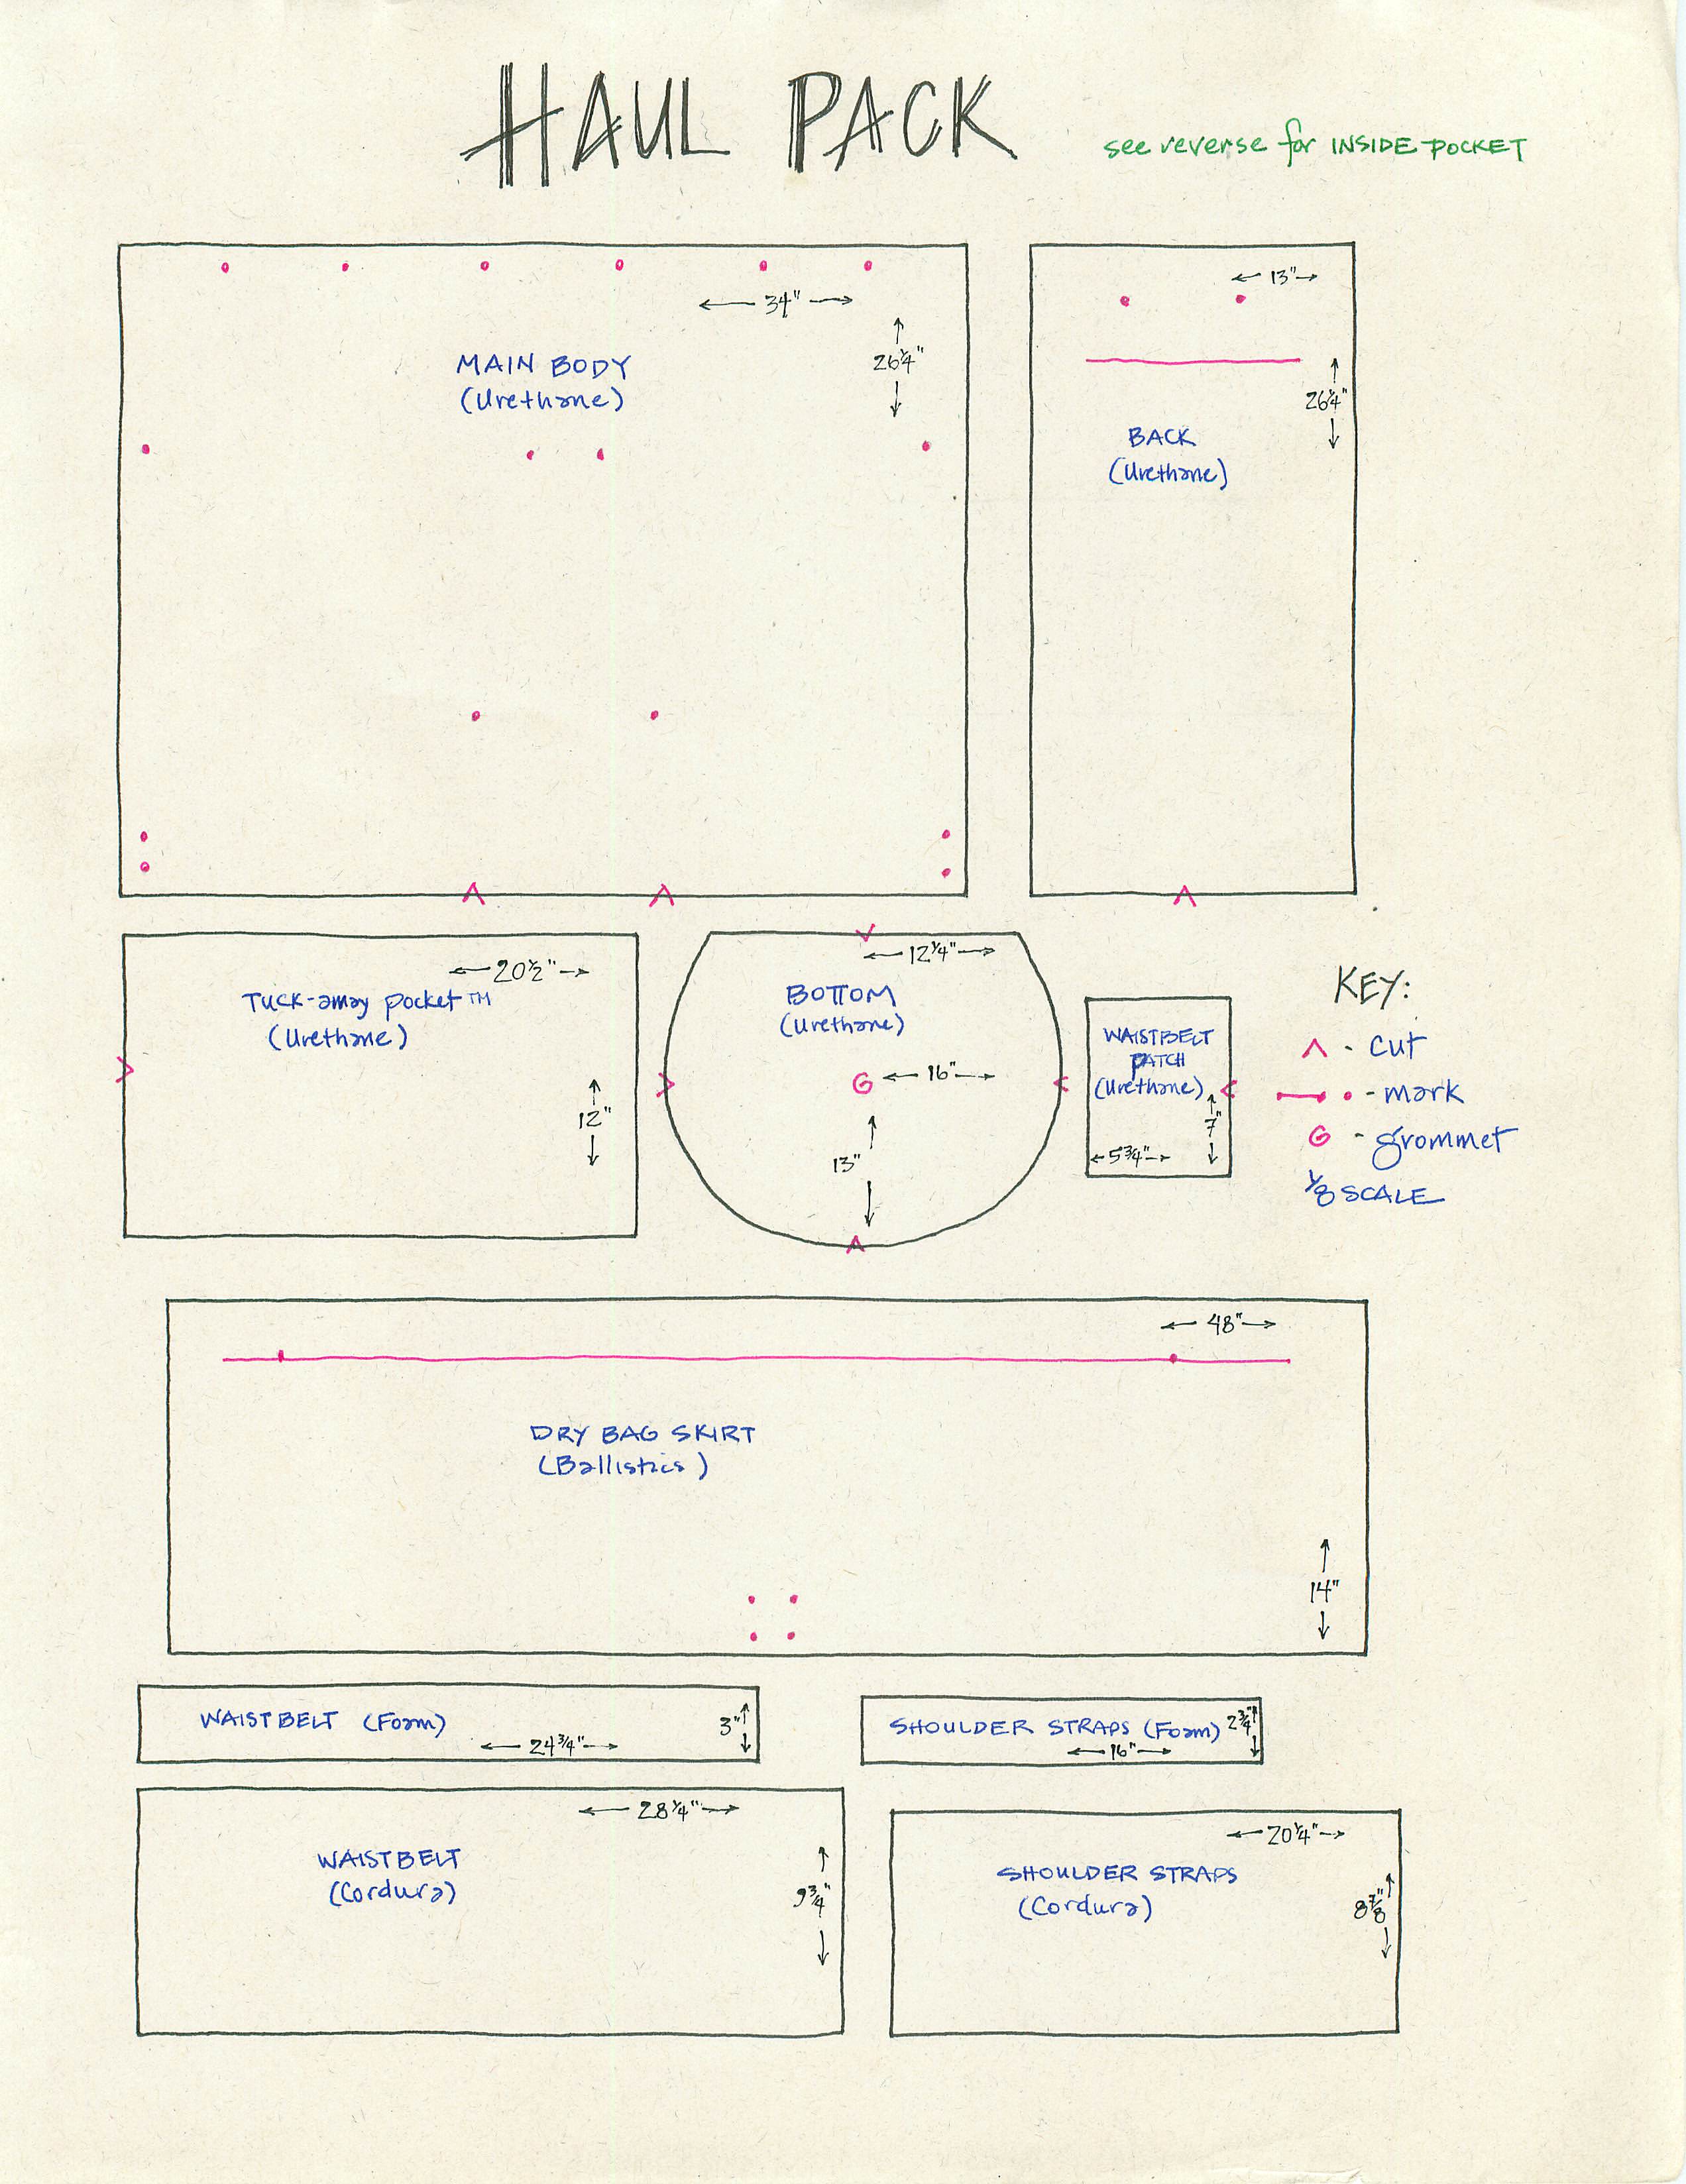 HAUL PACK
see reverse for INSIDE POCKET
34"
26 1/4"
MAIN BODY
(Urethane)
13"
26 1/4"
BACK
(Urethane)
20 1/2"
Tuck-away pocket™
(Urethane)
12"
12 1/4"
BOTTOM
(Urethane)
G
16"
13"
WAISTBELT
PATCH
(Urethane)
7"
5 3/4"
KEY:
^ - cut
- mark
G - grommet
1/8 SCALE
48"
DRY BAG SKIRT
(Ballistics)
14"
WAISTBELT (Foam)
3"
24 3/4"
SHOULDER STRAPS (Foam)
2 3/4"
16"
28 1/4"
WAISTBELT
(Cordura)
9 3/4"
20 1/4"
SHOULDER STRAPS
(Cordura)
8 7/8"